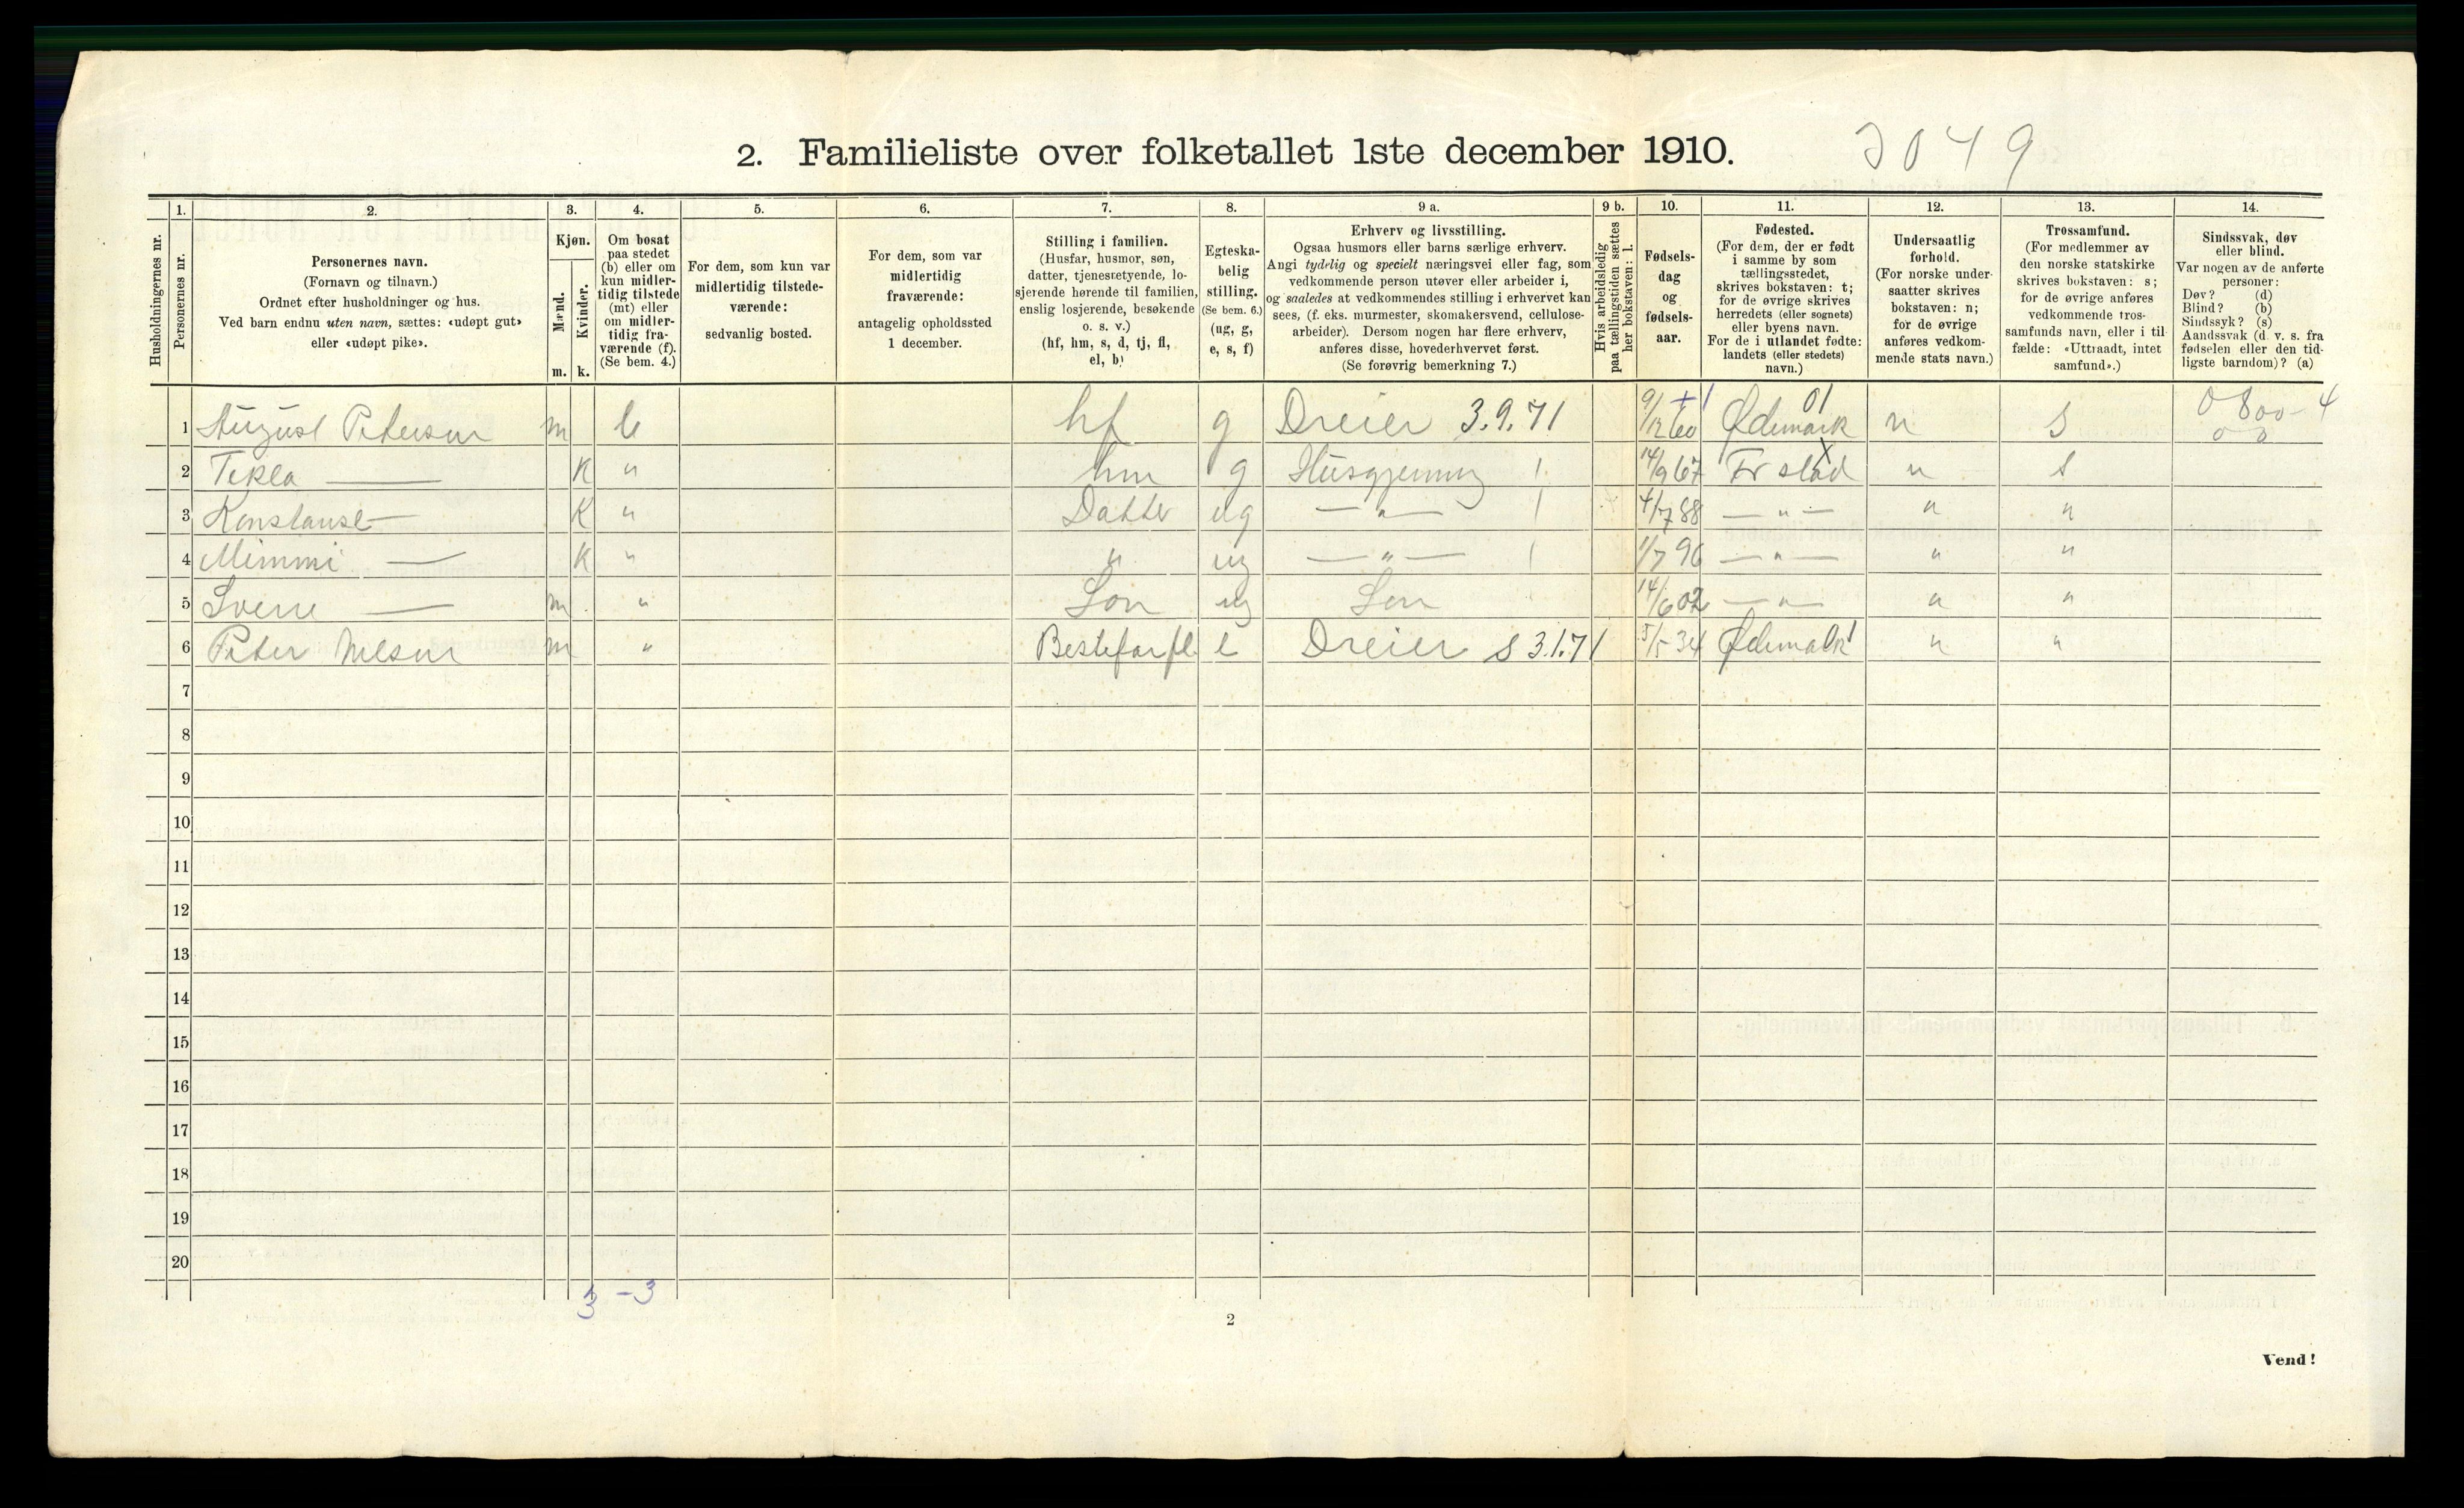 2. Familieliste over folketallet 1ste december 1910. 3049
Husholdningernes nr.
1.
Personernes nr.
2.
Personernes navn.
(Fornavn og tilnavn.)
Ordnet efter husholdninger og hus.
Ved barn endnu uten navn, sættes: «udøpt gut»
eller «udøpt pike».
3.
Kjøn.
Mænd.
Kvinder.
m. k.
4.
Om bosat
paa stedet
(b) eller om
kun midler-
tidig tilstede
(mt) eller
om midler-
tidig fra-
værende (f).
(Se bem. 4.)
5.
For dem, som kun var
midlertidig tilstede-
værende:
sedvanlig bosted.
6.
For dem, som var
midlertidig
fraværende:
antagelig opholdssted
1 december.
7.
Stilling i familien.
(Husfar, husmor, søn,
datter, tjenestetyende, lo-
sjerende hørende til familien,
enslig losjerende, besøkende
o. s. v.)
(hf, hm, s, d, tj, fl,
el, b)
8.
Egteska-
belig
stilling.
(Se bem. 6.)
(ug, g,
e, s, f)
9 a.
Erhverv og livsstilling.
Ogsaa husmors eller barns særlige erhverv.
Angi tydelig og specielt næringsvei eller fag, som
vedkommende person utøver eller arbeider i,
og saaledes at vedkommendes stilling i erhvervet kan
sees, (f. eks. murmester, skomakersvend, cellulose-
arbeider). Dersom nogen har flere erhverv,
anføres disse, hovederhvervet først.
(Se forøvrig bemerkning 7.)
9 b.
Hvis arbeidsledig
paa tællingstiden sættes
her bokstaven: l.
10.
Fødsels-
dag
og
fødsels-
aar.
11.
Fødested.
(For dem, der er født
i samme by som
tællingsstedet,
skrives bokstaven: t;
for de øvrige skrives
herredets (eller sognets)
eller byens navn.
For de i utlandet fødte:
landets (eller stedets)
navn.)
12.
Undersaatlig
forhold.
(For norske under-
saatter skrives
bokstaven: n;
for de øvrige
anføres vedkom-
mende stats navn.)
13.
Trossamfund.
(For medlemmer av
den norske statskirke
skrives bokstaven: s;
for de øvrige anføres
vedkommende tros-
samfunds navn, eller i til-
fælde: «Uttraadt, intet
samfund».)
14.
Sindssvak, døv
eller blind.
Var nogen av de anførte
personer:
Døv? (d)
Blind? (b)
Sindssyk? (s)
Aandssvak (d. v. s. fra
fødselen eller den tid-
ligste barndom)? (a)
1 August Petersen m b hf g Dreier 3.9.71 9/12 60 Ødemark 01 n S 0800-4
2 Tekla — K " hm g Husgjerning 1 14/9 67 Fr stad x n S
3 Konstanse — K " Datter ug — " — 1 4/7 88 — " — " "
4 Mimmi — K " " ug — " — 1 1/7 96 — " — " "
5 Sverre — m " Søn ug Søn 14/6 02 — " — " "
6 Peter Nilsen m " Bestefar fl e Dreier S 3.1.71 5/5 34 Ødemark 1 " "
7
8
9
10
11
12
13
14
15
16
17
18
19
20
3 - 3
2
Vend!